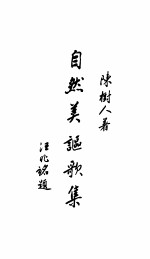 陳樹人著
自然美謳歌集
汪兆銘題